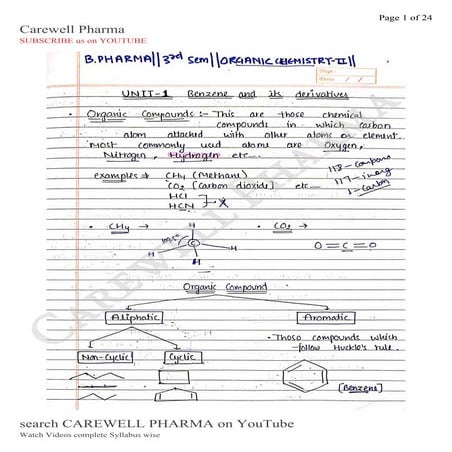 Carewell Pharma
Page 1 of 24
SUBSCRIBE us on YOUTUBE
B.PHARMA||3rd sem||ORGANIC CHEMISTRY-II||
Page:
Date: / /
UNIT-1 Benzene and its derivatives
• Organic Compounds :- This are those chemical
compounds in which carbon
atom attached with other atoms or element.
most commonly used atoms are Oxygen,
Nitrogen, Hydrogen etc.
118-
117-
1-carbon
examples ⇒ CH4 (Methane)
CO2 [Carbon dioxide] etc
HCl
HCN
• CH4 →
• CO2 →
H
C
H
H
H
O=C=O
Organic Compound
Aliphatic
Aromatic
• Those compounds which
follow Huckle's rule.
Non-Cyclic
Cyclic
[Benzene]
CAREWELL PHARMA
search CAREWELL PHARMA on YouTube
Watch Videos complete Syllabus wise